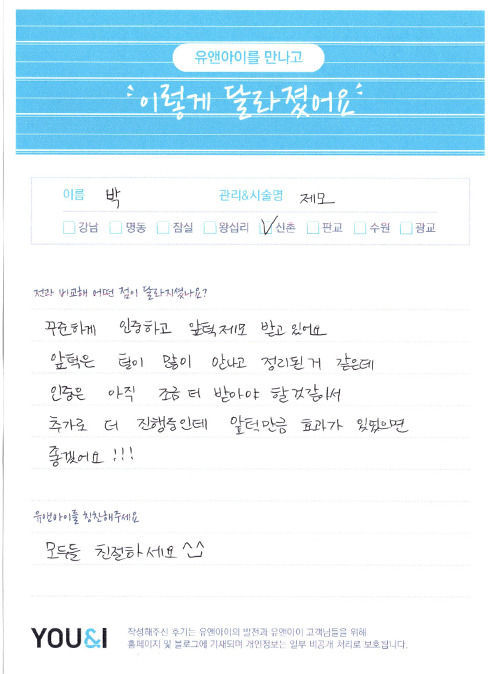 유앤아이를 만나고
이렇게 달라졌어요
이름 박 관리&시술명 제모
강남 명동 잠실 왕십리 신촌 판교 수원 광교
전과 비교해 어떤 점이 달라지셨나요?
꾸준하게 인중하고 앞턱제모 받고 있어요
앞턱은 털이 많이 안나고 정리된거 같은데
인중은 아직 조금 더 받아야 할것같아서
추가로 더 진행중인데 앞턱만큼 효과가 있었으면
좋겠어요 !!!
유앤아이를 칭찬해주세요
모두들 친절하세요 ^^
YOU&I
작성해주신 후기는 유앤아이의 발전과 유앤아이 고객님들을 위해
홈페이지 및 블로그에 기재되며 개인정보는 일부 비공개 처리로 보호됩니다.